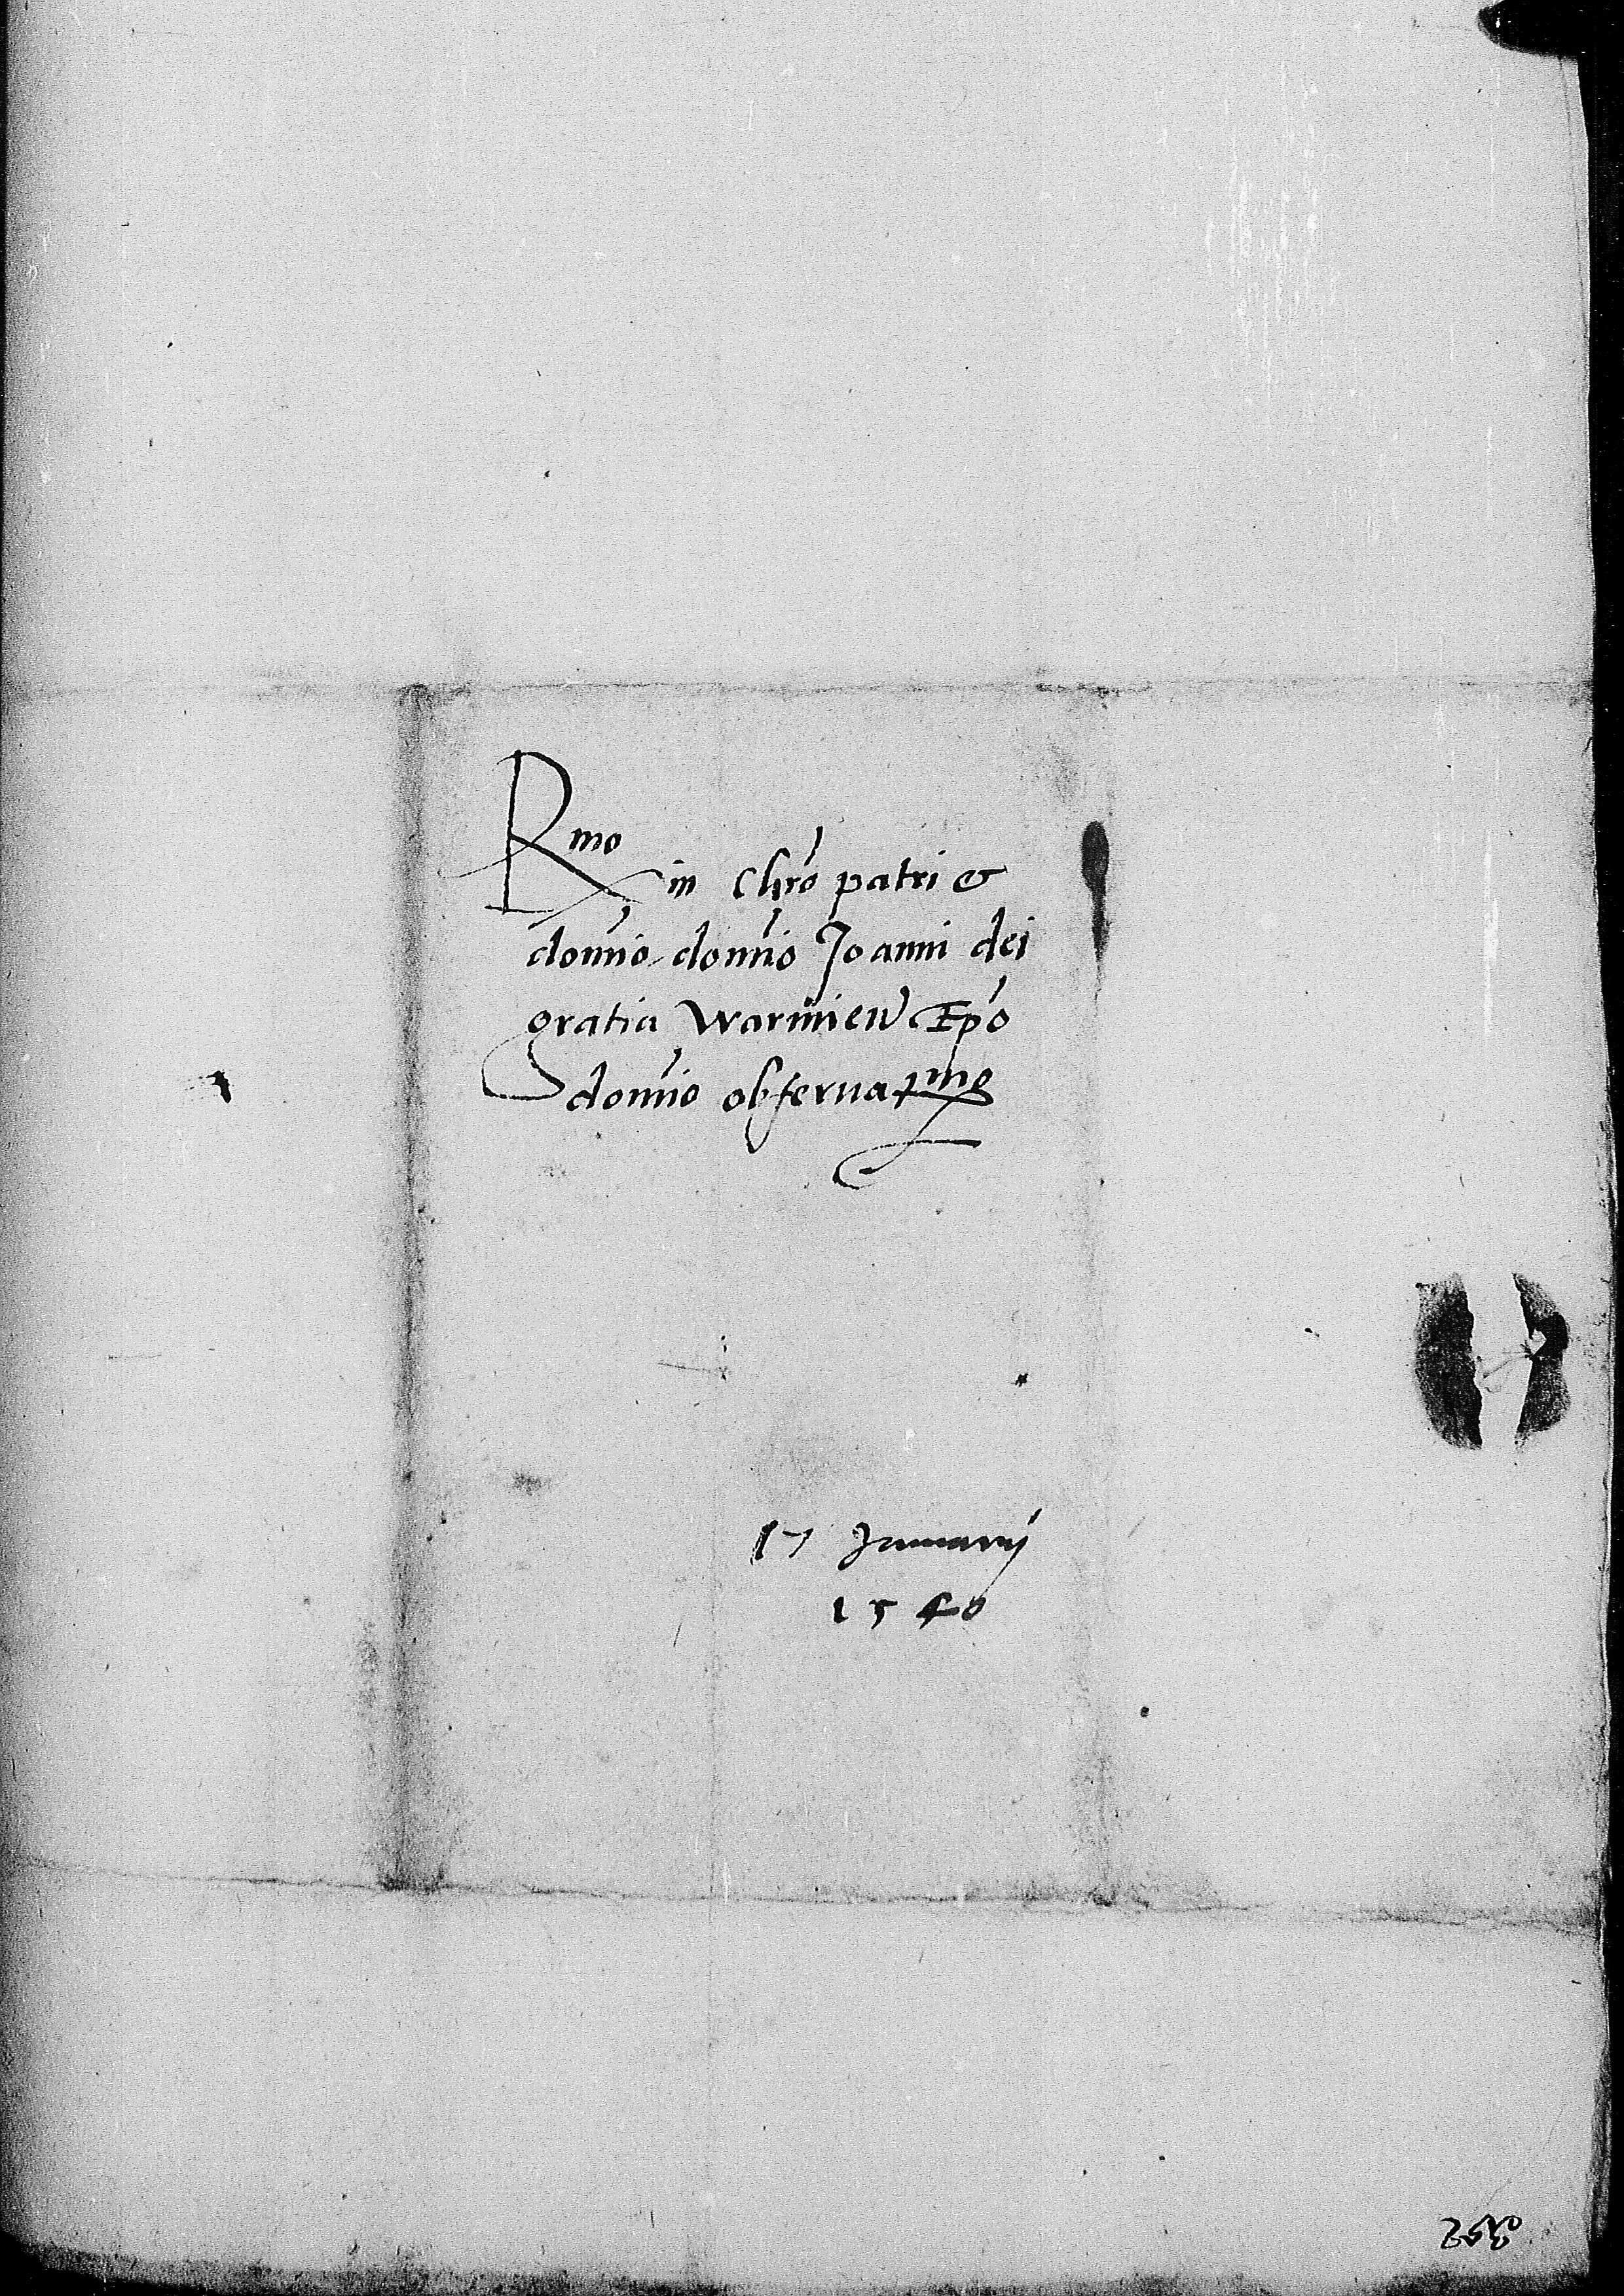 Rmo
in Chro patri et
domino domino Joanni dei
gratia Warmien Epo
domino obseruatmo
17 Januarij
1540